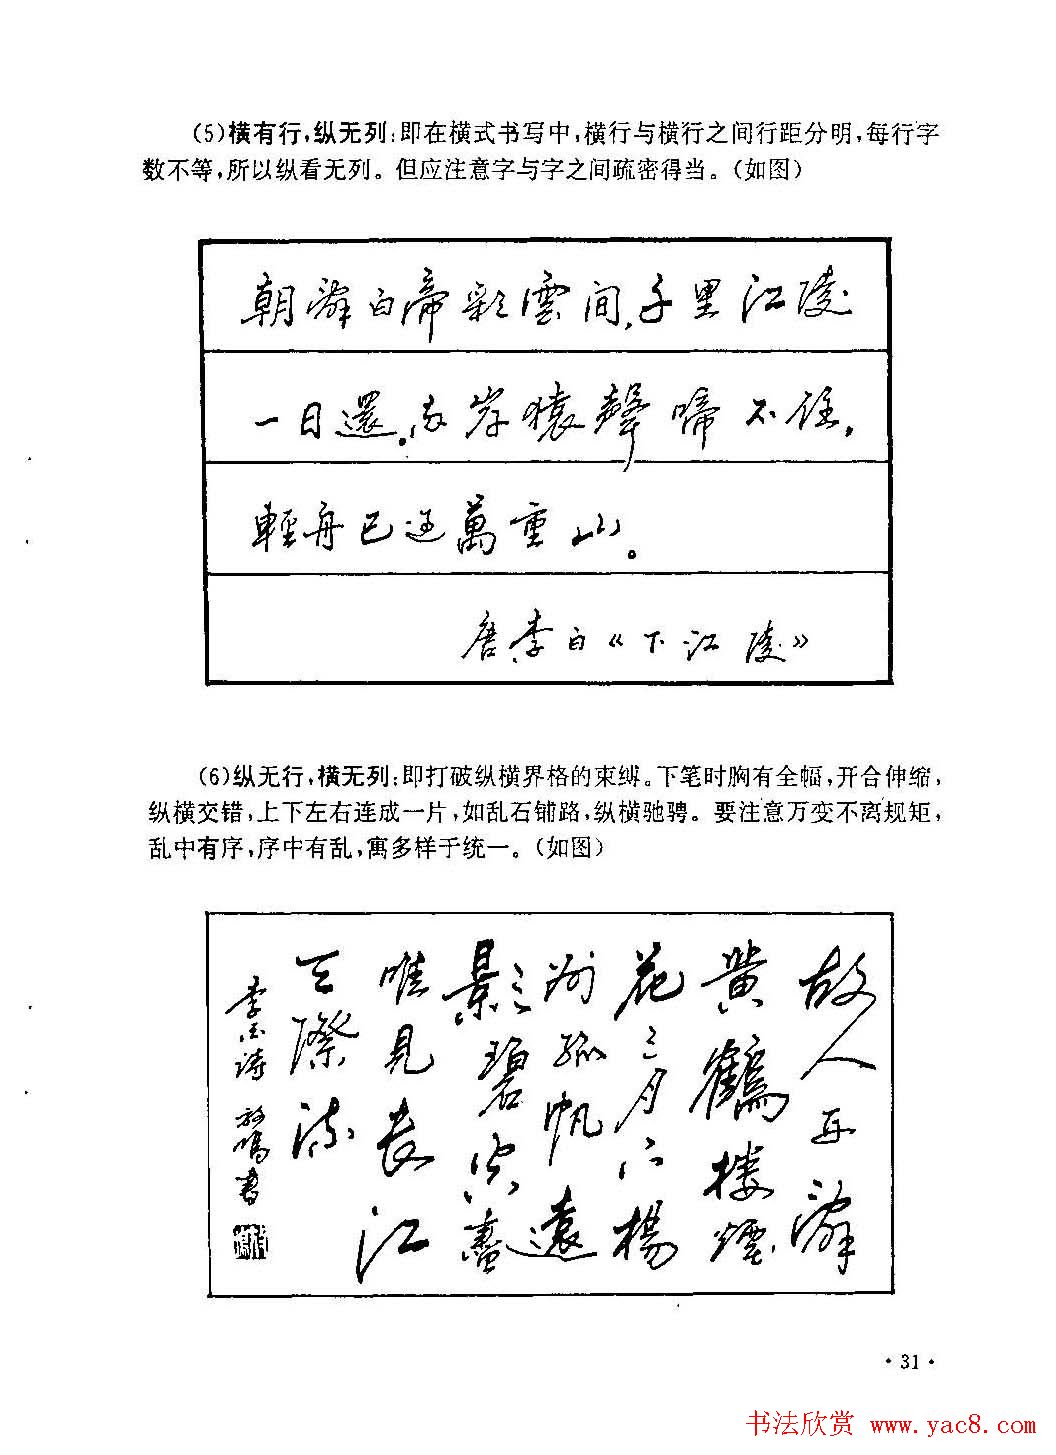 (5)横有行,纵无列:即在横式书写中,横行与横行之间行距分明,每行字
数不等,所以纵看无列。但应注意字与字之间疏密得当。(如图)
朝辭白帝彩雲間,千里江陵
一日還。兩岸猿聲啼不住,
輕舟已過萬重山。
唐李白《下江陵》
(6)纵无行,横无列:即打破纵横界格的束缚。下笔时胸有全幅,开合伸缩,
纵横交错,上下左右连成一片,如乱石铺路,纵横驰骋。要注意万变不离规矩,
乱中有序,序中有乱,寓多样于统一。(如图)
故人西辭
黄鶴楼煙
花三月下揚
州孤帆遠
影碧空盡
唯見長江
天際流
李白詩 鳴書
·31·
书法欣赏 www.yac8.com